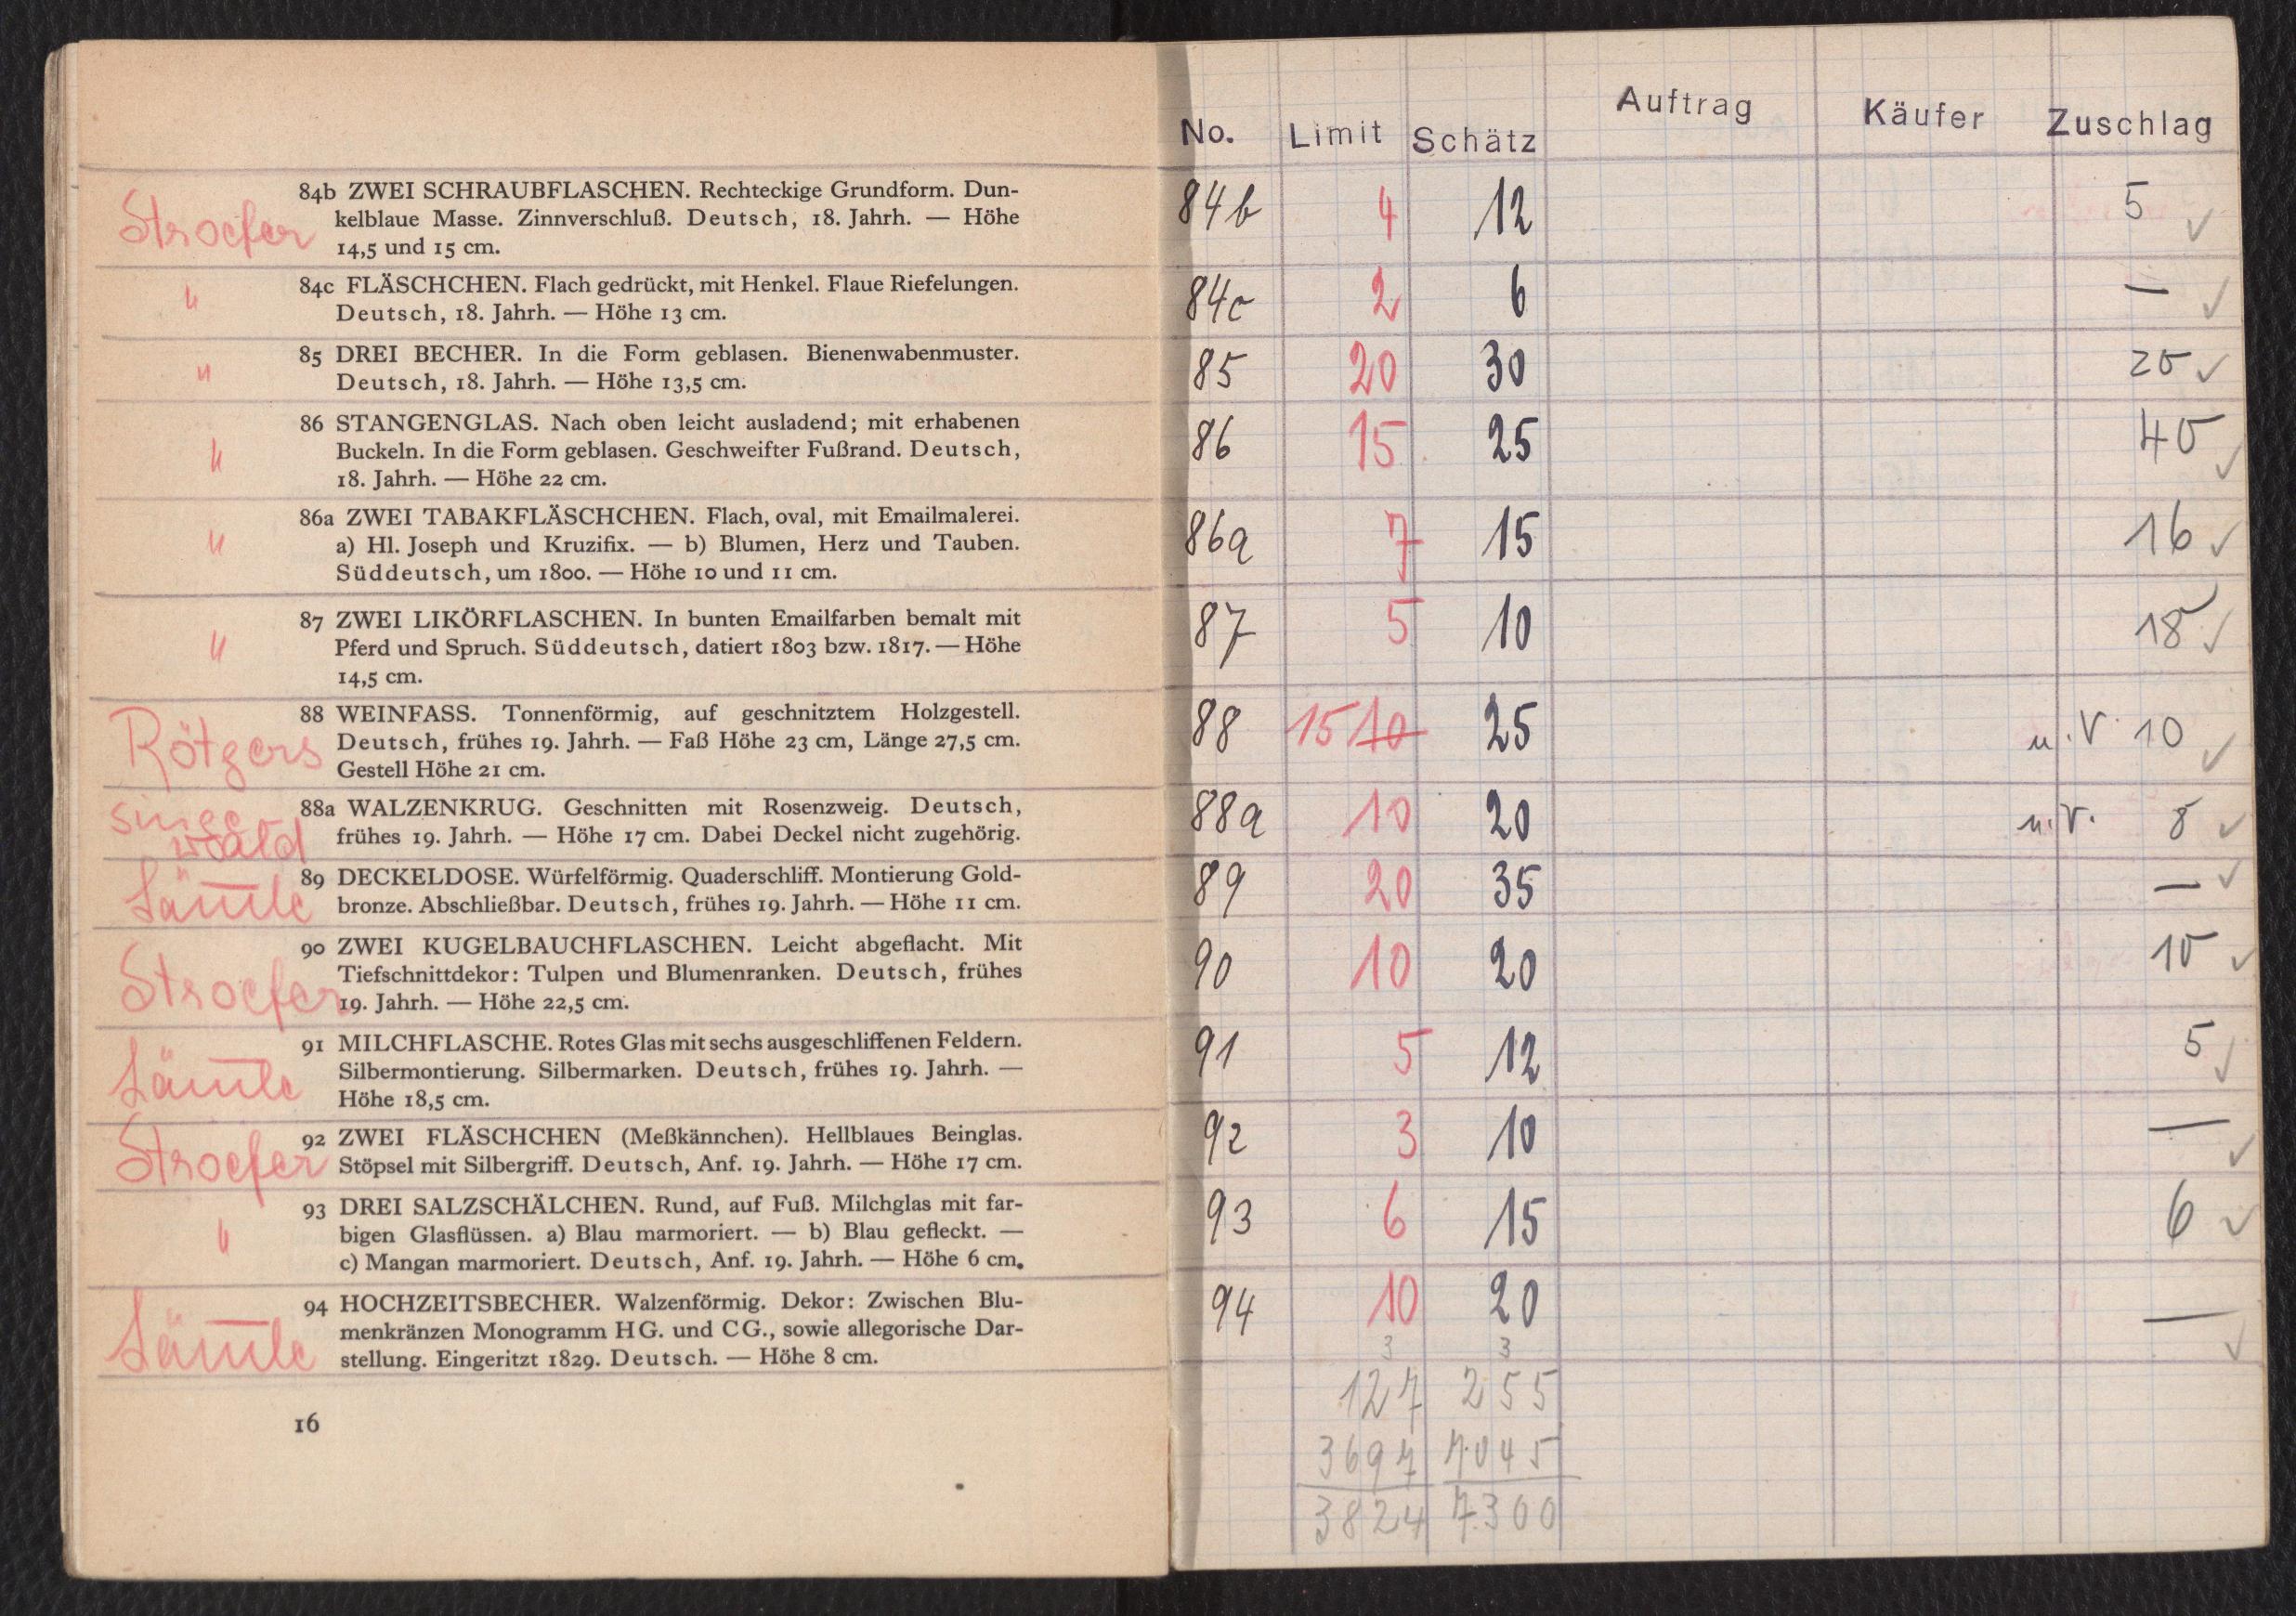 Stroefer
84b ZWEI SCHRAUBFLASCHEN. Rechteckige Grundform. Dun-
kelblaue Masse. Zinnverschluß. Deutsch, 18. Jahrh. — Höhe
14,5 und 15 cm.
"
84c FLÄSCHCHEN. Flach gedrückt, mit Henkel. Flaue Riefelungen.
Deutsch, 18. Jahrh. — Höhe 13 cm.
"
85 DREI BECHER. In die Form geblasen. Bienenwabenmuster.
Deutsch, 18. Jahrh. — Höhe 13,5 cm.
"
86 STANGENGLAS. Nach oben leicht ausladend; mit erhabenen
Buckeln. In die Form geblasen. Geschweifter Fußrand. Deutsch,
18. Jahrh. — Höhe 22 cm.
"
86a ZWEI TABAKFLÄSCHCHEN. Flach, oval, mit Emailmalerei.
a) Hl. Joseph und Kruzifix. — b) Blumen, Herz und Tauben.
Süddeutsch, um 1800. — Höhe 10 und 11 cm.
"
87 ZWEI LIKÖRFLASCHEN. In bunten Emailfarben bemalt mit
Pferd und Spruch. Süddeutsch, datiert 1803 bzw. 1817. — Höhe
14,5 cm.
Rötgers
88 WEINFASS. Tonnenförmig, auf geschnitztem Holzgestell.
Deutsch, frühes 19. Jahrh. — Faß Höhe 23 cm, Länge 27,5 cm.
Gestell Höhe 21 cm.
singe
wald
88a WALZENKRUG. Geschnitten mit Rosenzweig. Deutsch,
frühes 19. Jahrh. — Höhe 17 cm. Dabei Deckel nicht zugehörig.
89 DECKELDOSE. Würfelförmig. Quaderschliff. Montierung Gold-
bronze. Abschließbar. Deutsch, frühes 19. Jahrh. — Höhe 11 cm.
Stroefer
90 ZWEI KUGELBAUCHFLASCHEN. Leicht abgeflacht. Mit
Tiefschnittdekor: Tulpen und Blumenranken. Deutsch, frühes
19. Jahrh. — Höhe 22,5 cm.
91 MILCHFLASCHE. Rotes Glas mit sechs ausgeschliffenen Feldern.
Silbermontierung. Silbermarken. Deutsch, frühes 19. Jahrh. —
Höhe 18,5 cm.
Stroefer
92 ZWEI FLÄSCHCHEN (Meßkännchen). Hellblaues Beinglas.
Stöpsel mit Silbergriff. Deutsch, Anf. 19. Jahrh. — Höhe 17 cm.
"
93 DREI SALZSCHÄLCHEN. Rund, auf Fuß. Milchglas mit far-
bigen Glasflüssen. a) Blau marmoriert. — b) Blau gefleckt. —
c) Mangan marmoriert. Deutsch, Anf. 19. Jahrh. — Höhe 6 cm.
94 HOCHZEITSBECHER. Walzenförmig. Dekor: Zwischen Blu-
menkränzen Monogramm HG. und CG., sowie allegorische Dar-
stellung. Eingeritzt 1829. Deutsch. — Höhe 8 cm.
16
No. Limit Schätz Auftrag Käufer Zuschlag
84b 4 12 5 ✓
84c 2 6 — ✓
85 20 30 20 ✓
86 15 25 40 ✓
86a 7 15 16 ✓
87 5 10 18 ✓
88 15 10 25 u.V. 10 ✓
88a 10 20 u.V. 8 ✓
89 20 35 — ✓
90 10 20 10 ✓
91 5 12 5 ✓
92 3 10 — ✓
93 6 15 6 ✓
94 10 20 — ✓
3 3
127 255
3697 7045
3824 7300